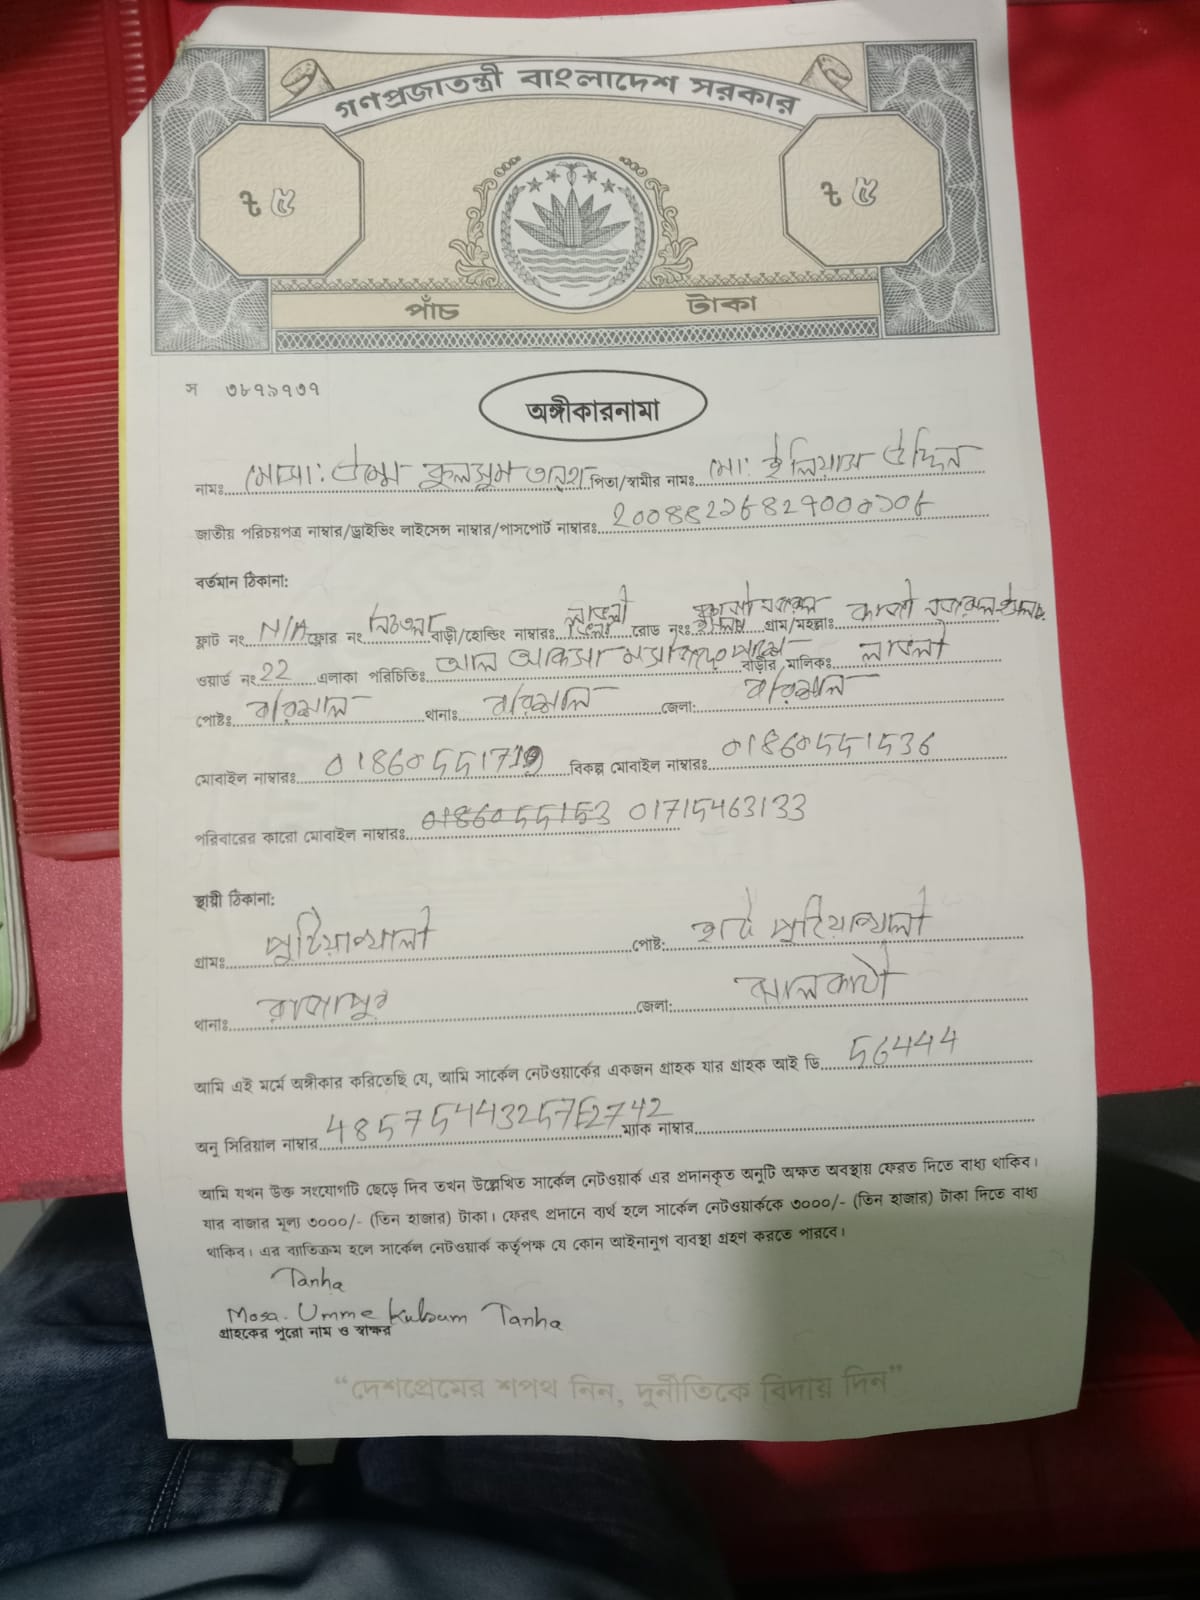 গণপ্রজাতন্ত্রী বাংলাদেশ সরকার
৳ ৫ ৳ ৫
পাঁচ টাকা
স ৩৮৭৯৭৩৭
অঙ্গীকারনামা
নামঃ মোসা: উম্মে কুলসুম তানহা পিতা/স্বামীর নামঃ মো: ইলিয়াস উদ্দিন
জাতীয় পরিচয়পত্র নাম্বার/ড্রাইভিং লাইসেন্স নাম্বার/পাসপোর্ট নাম্বারঃ
বর্তমান ঠিকানা:
ফ্লাট নং N/A ফ্লোর নং নিচতলা বাড়ী/হোল্ডিং নাম্বারঃ রোড নংঃ গ্রাম/মহল্লাঃ
ওয়ার্ড নং 22 এলাকা পরিচিতিঃ আল আকসা মসজিদের পাশে বাড়ীর মালিকঃ লাভলী
পোষ্টঃ বরিশাল থানাঃ বরিশাল জেলাঃ বরিশাল
মোবাইল নাম্বারঃ বিকল্প মোবাইল নাম্বারঃ 01860551536
পরিবারের কারো মোবাইল নাম্বারঃ 01715463133
স্থায়ী ঠিকানা:
গ্রামঃ পুটিয়াখালী পোষ্ট: হাট পুটিয়াখালী
থানাঃ রাজাপুর জেলা: ঝালকাঠী
আমি এই মর্মে অঙ্গীকার করিতেছি যে, আমি সার্কেল নেটওয়ার্কের একজন গ্রাহক যার গ্রাহক আই ডি 56444
অনু সিরিয়াল নাম্বার ম্যাক নাম্বার
আমি যখন উক্ত সংযোগটি ছেড়ে দিব তখন উল্লেখিত সার্কেল নেটওয়ার্ক এর প্রদানকৃত অনুটি অক্ষত অবস্থায় ফেরত দিতে বাধ্য থাকিব।
যার বাজার মূল্য ৩০০০/- (তিন হাজার) টাকা। ফেরৎ প্রদানে ব্যর্থ হলে সার্কেল নেটওয়ার্ককে ৩০০০/- (তিন হাজার) টাকা দিতে বাধ্য
থাকিব। এর ব্যাতিক্রম হলে সার্কেল নেটওয়ার্ক কর্তৃপক্ষ যে কোন আইনানুগ ব্যবস্থা গ্রহণ করতে পারবে।
Tanha
Mosa. Umme Kulsum Tanha
গ্রাহকের পুরো নাম ও স্বাক্ষর
“দেশপ্রেমের শপথ নিন, দুর্নীতিকে বিদায় দিন”